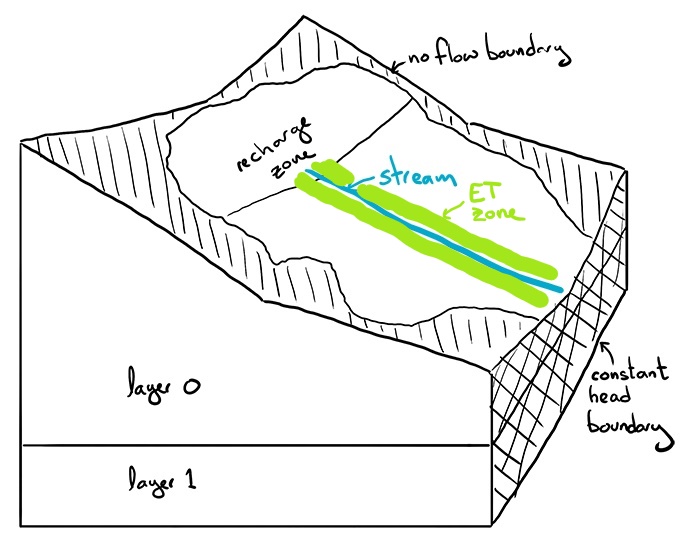 no flow boundary
recharge
zone
stream
ET
zone
constant
head
boundary
layer 0
layer 1